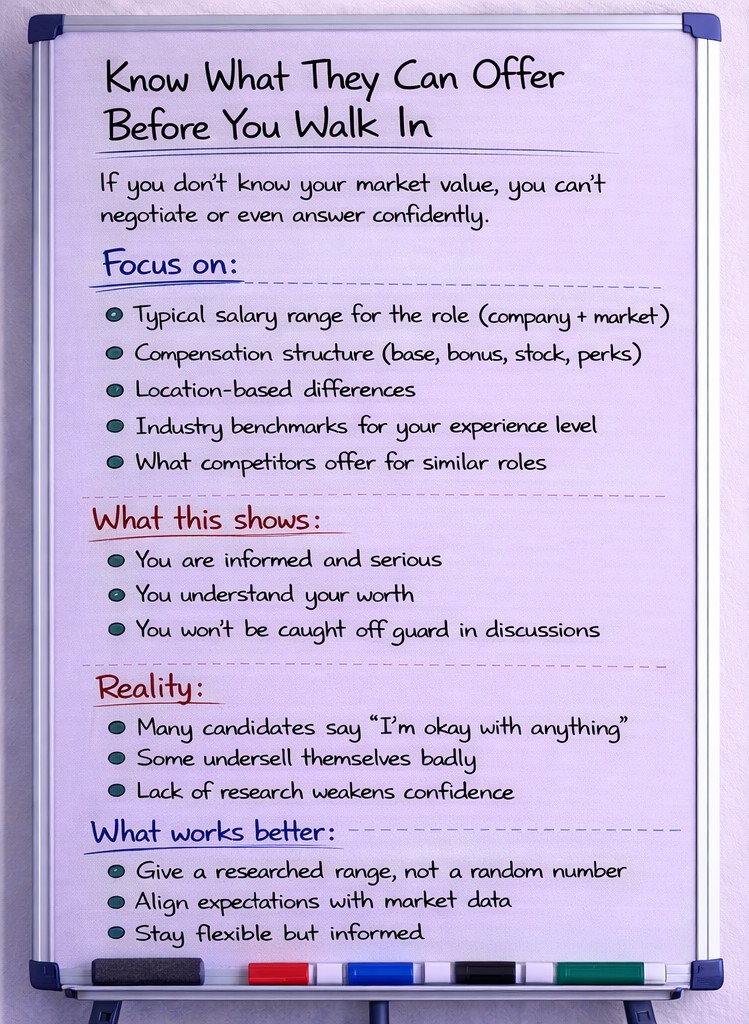 Know What They Can Offer
Before You Walk In
If you don't know your market value, you can't
negotiate or even answer confidently.
Focus on:
Typical salary range for the role (company + market)
Compensation structure (base, bonus, stock, perks)
Location-based differences
Industry benchmarks for your experience level
What competitors offer for similar roles
What this shows:
You are informed and serious
You understand your worth
You won't be caught off guard in discussions
Reality:
Many candidates say “I'm okay with anything”
Some undersell themselves badly
Lack of research weakens confidence
What works better:
Give a researched range, not a random number
Align expectations with market data
Stay flexible but informed